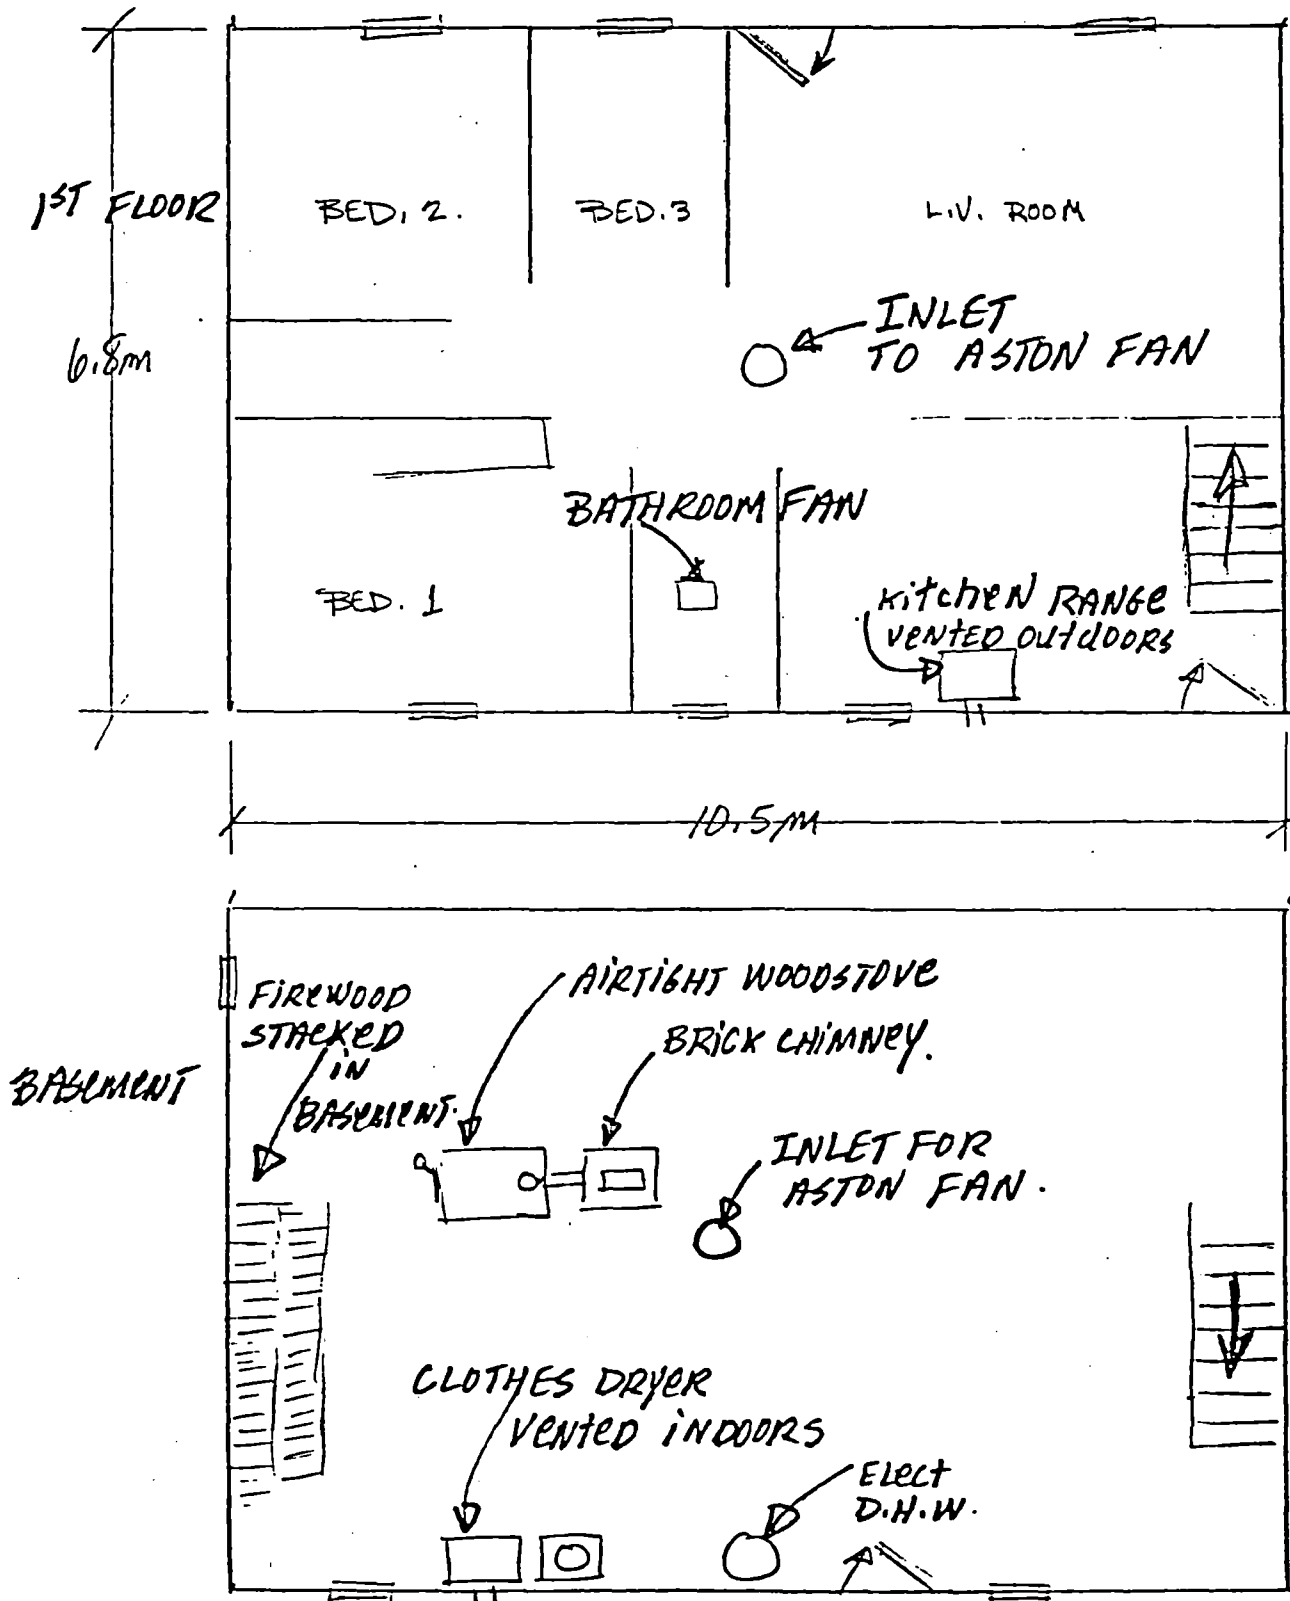 1ST FLOOR
BED. 2.
BED. 3
LIV. ROOM
6.8m
INLET
TO ASTON FAN
BATHROOM FAN
BED. 1
KitcheN RANGe
VeNteD OutdOORS
10.5m
BASeMeNT
FiReWOOD
STACKeD
iN
BASeMeNT.
AiRTiGHT WOODSTOVe
BRiCK CHiMNey.
INLET FOR
ASTON FAN.
CLOTHES DRYeR
VeNteD iNDOORS
ELect
D.H.W.